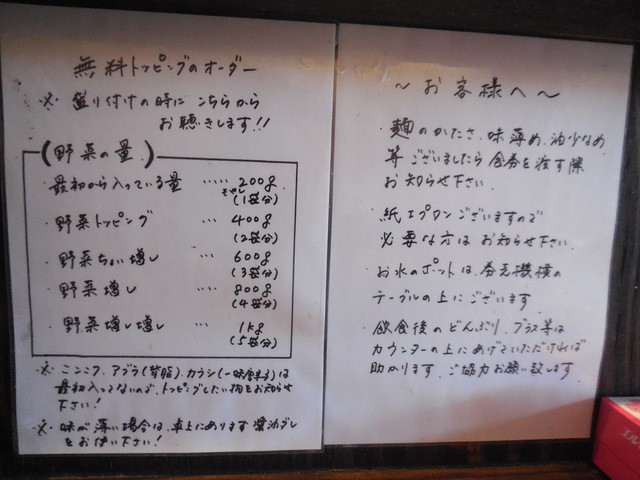 無料トッピングのオーダー
※ 盛り付けの時にこちらから
お聴きします!!
(野菜の量)
最初から入っている量 ‥‥‥ 200g
もやし(1袋分)
野菜トッピング ‥‥ 400g
(2袋分)
野菜ちょい増し ‥‥ 600g
(3袋分)
野菜増し ‥‥ 800g
(4袋分)
野菜増し増し ‥‥ 1kg
(5袋分)
※ ニンニク、アブラ(背脂)、カラシ(一味唐辛子)は
最初入ってないので、トッピングしたい物をお知らせ
下さい!
※ 味が薄い場合は、卓上にあります醤油ダレ
をお使い下さい!
～お客様へ～
・麺のかたさ、味薄め、油少なめ
等ございましたら食券を渡す際
お知らせ下さい。
・紙エプロンございますので
必要な方はお知らせ下さい。
・お水のポットは、券売機横の
テーブルの上にございます
・飲食後のどんぶり、グラス等は
カウンターの上にあげていただければ
助かります。ご協力お願い致します